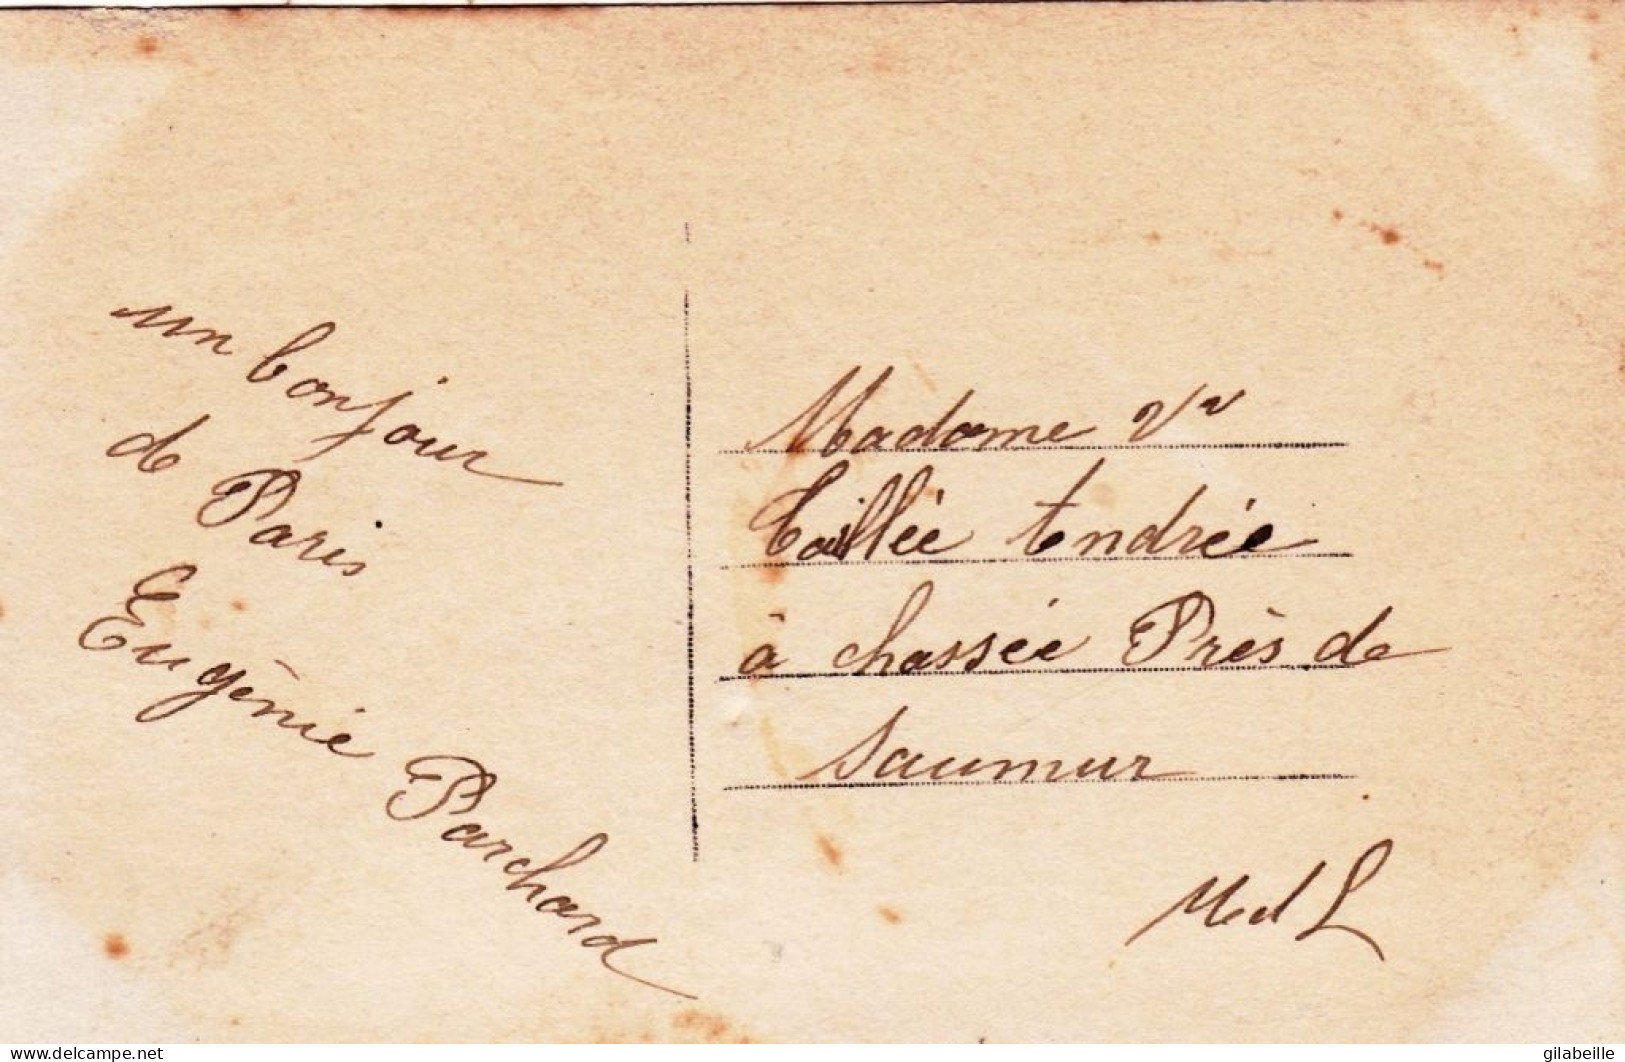 un bonjour
de Paris
Eugénie Parchard
Madame Vve
Taillée Andrée
à chassée Près de
Saumur
M et L
delcampe.net
gilabeille